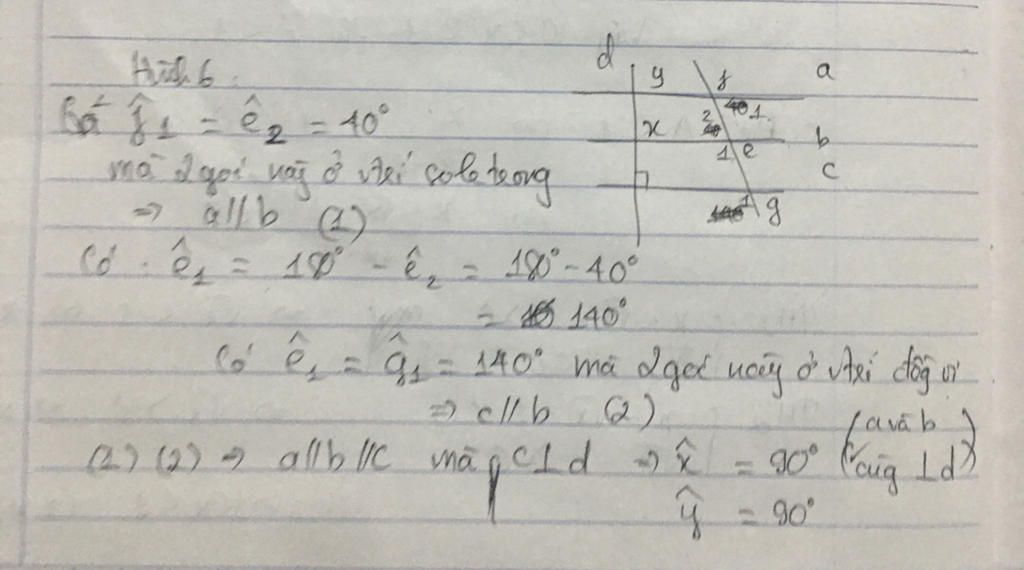 Hình 6.
Có f̂1 = ê2 = 40°
mà 2 góc này ở vtrí sole trong
=> a//b (1)
Có ê1 = 180° - ê2 = 180° - 40°
= 140°
Có ê1 = ĝ1 = 140° mà 2 góc này ở vtrí đồg vị
=> c//b (2)
(1) (2) => a//b//c mà c⊥d => x̂ = 90° (a và b
cùg ⊥d)
ŷ = 90°
d y f a
1
x 2 b
1 e c
1 g